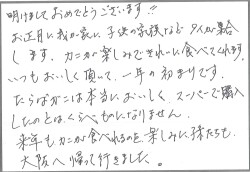 明けましておめでとうございます!!
お正月に我が家に、子供の家族など 9人が集合
します。カニが楽しみできれーに食べてくれます。
いつもおいしく頂いて、一年の初まりです。
たらばがには本当においしく、スーパーで購入
したのとは、くらべものになりません。
来年もカニが食べれるのを楽しみに孫たちも
大阪へ帰って行きました。